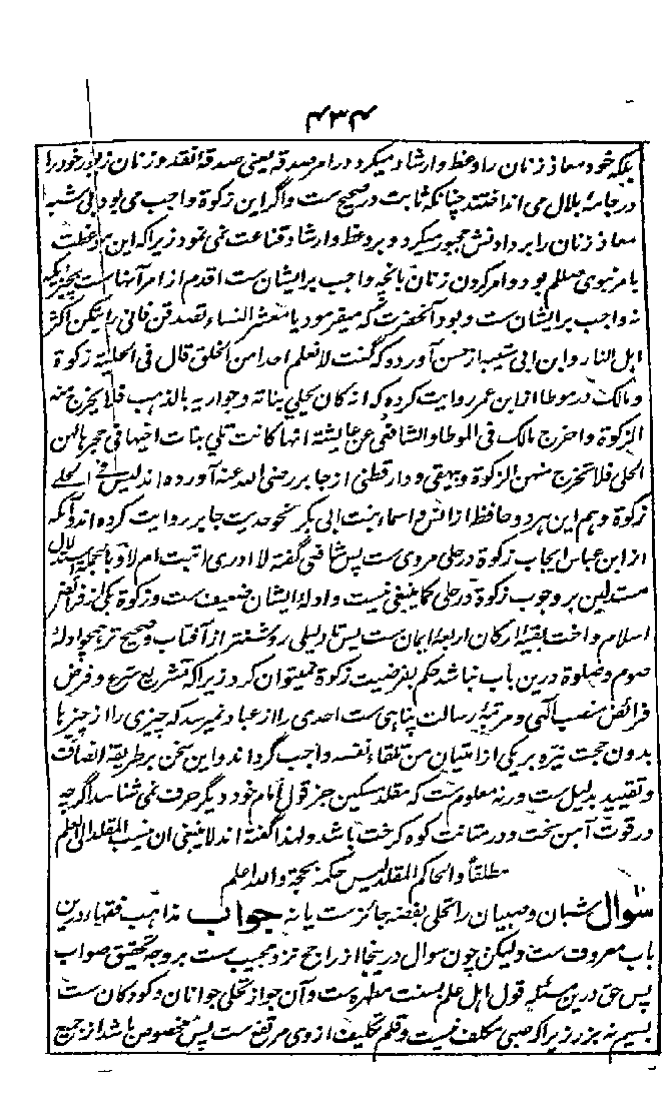 ۴۳۴
بلکه خود معاذ زنان را وعظ وارشاد میکرد در امر صدقه یعنی صدقة النقد وزنان زیور خود را
در جامهٔ بلال می انداختند چنانکه ثابت در صحیح ست واگر این زکوة واجب می بود بی شبه
معاذ زنان را بر دادنش مجبور میکرد و بر وعظ وارشاد قناعت نمی نمود زیرا که این موعظت
بامر نبوی صلعم بود وامر کردن زنان بانچه واجب برایشان ست اقدم از امر آنهاست بچیزیکه
نه واجب برایشان ست وبود آنحضرت که میفرمود یا معشر النساء تصدقن فانی رایتکن اکثر
اهل النار وابن ابی شیبه از حسن آورده که گفت لا نعلم احدا من الخلق قال فی الحلیة زکوة
ومالک در موطا از ابن عمر روایت کرده که انه کان یحلی بناته وجواریه بالذهب فلا یخرج منه
الزکوة واخرج مالک فی الموطا والشافعی عن عایشة انها کانت تلی بنات اخیها فی حجرها لهن
الحلی فلا تخرج منهن الزکوة وبیهقی ودارقطنی از جابر رضی الله عنه آورده اند لیس فی الحلی
زکوة وهم این هر دو حافظ از انس واسماء بنت ابی بکر نحو حدیث جابر روایت کرده اند وآنکه
از ابن عباس ایجاب زکوة در حلی مروی ست پس شافعی گفته لا ادری اثبت ام لا وبالجمله استدلال
مستدلین بر وجوب زکوة در حلی کما ینبغی نیست وادلهٔ ایشان ضعیف ست وزکوة یکی از فرائض
اسلام واخت بقیهٔ ارکان اربعهٔ ایمان ست پس تا دلیلی روشنتر از آفتاب وصحیح تر همچو ادلهٔ
صوم وصلوة درین باب نباشد حکم بفرضیت زکوة نمیتوان کرد زیرا که تشریع شرع وفرض
فرائض منصب الهی ومرتبهٔ رسالت پناهی ست احدی را از عباد نمیرسد که چیزی را از چیزها
بدون حجت نیره بر یکی از امتیان من تلقاء نفسه واجب گرداند واین سخن بر طریقهٔ انصاف
وتقیید بدلیل ست ورنه معلوم ست که مقلد مسکین جز قول امام خود دیگر حرف نمی شناسد اگرچه
در قوت آهن سخت ودر متانت کوه کرخت باشد ولهذا گفته اند لا ینبغی ان ینسب المقلد الی العلم
مطلقا والحاکم المقلد لیس حکمه بحجة والله اعلم
سوال شبان وصبیان را تحلی بفضه جائز ست یا نه جواب مذاهب فقهاء درین
باب معروف ست ولیکن چون سوال درینجا از راجح نزد مجیب ست بر وجه تحقیق صواب
پس حق درین مسئله قول اهل علم بسنت مطهره ست وآن جواز تحلی جوانان وکودکان ست
بسیم نه بزر زیرا که صبی مکلف نیست وقلم تکلیف از وی مرتفع ست پس مخصوص باشد از جمیع